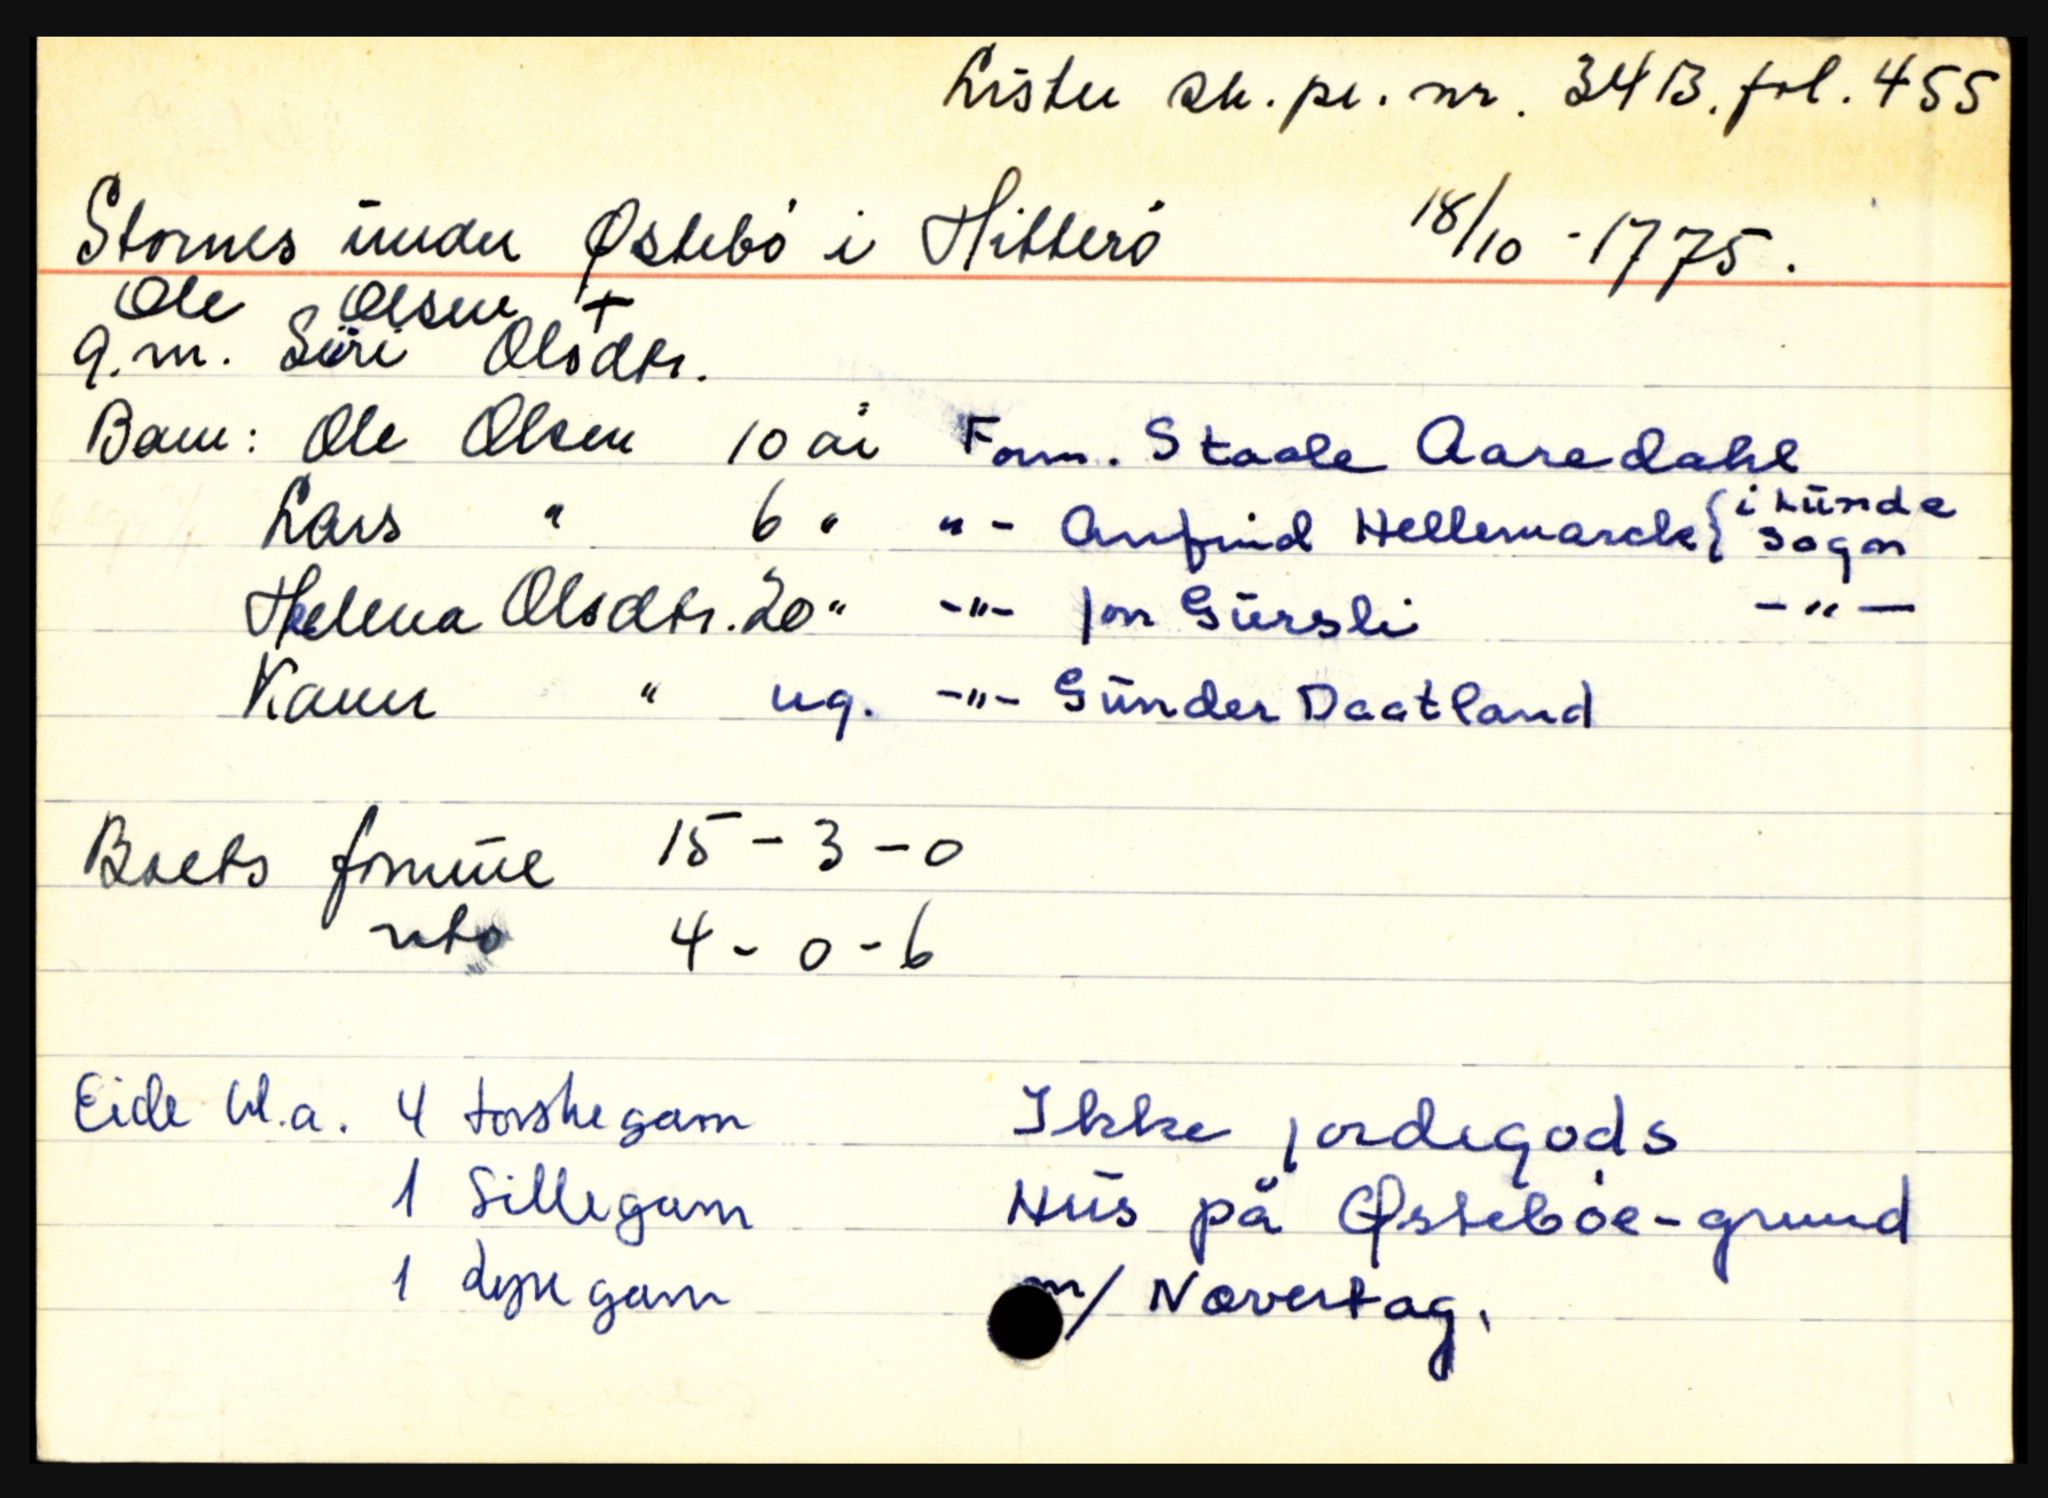 Lister sk. pr. nr. 34 B. fol. 455
Stornes under Østebø i Hitterø 18/10 - 1775.
Ole Olsen +
g.m. Siri Olsdtr.
Barn: Ole Olsen 10 år Form. Staale Aaredahl
Lars " 6 " " - Anfind Hellemarck { i Lunde sogn
Helena Olsdtr. 20 " -"- Jon Gursli -"-
Karen " ug. -"- Gunder Daatland
Boets formue 15 - 3 - 0
nto 4 - 0 - 6
Eide bl.a. 4 torskegarn Ikke jordegods
1 Sillegarn Hus på Østebøe-grund
1 Lyregarn m/ Nevertag.